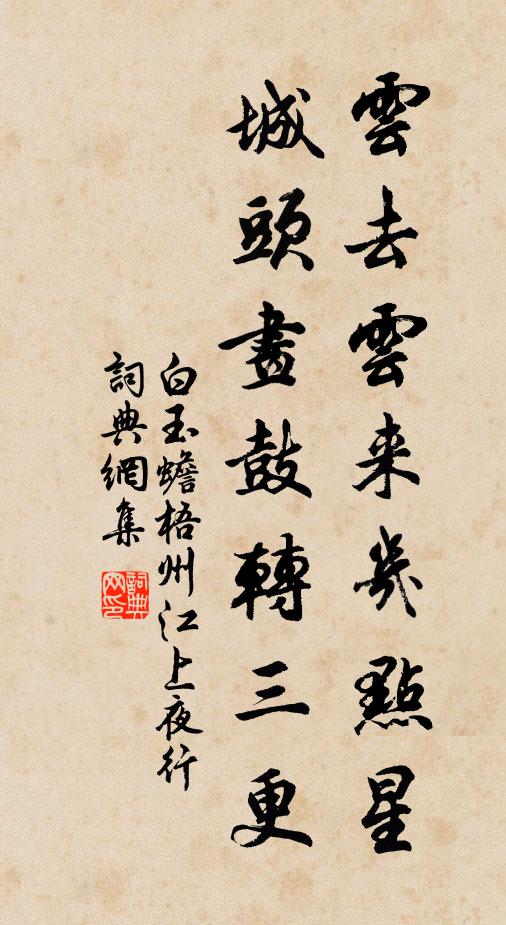 雲去雲来幾點星
城頭畫鼓轉三更
白玉蟾梧州江上夜行
詞典網集
詞典网印